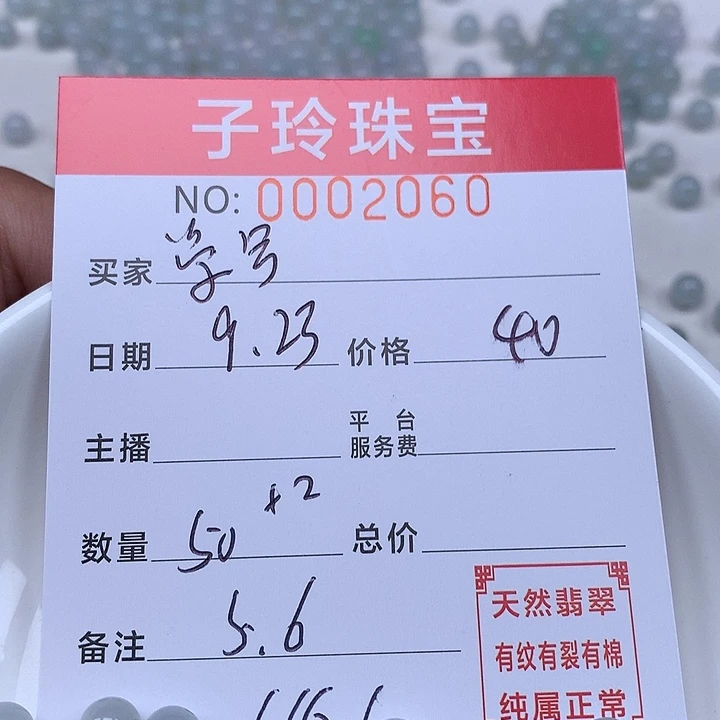 子玲珠宝
NO: 0002060
买家 学号
日期 9.23 价格 40
主播 平台服务费
数量 50 +2 总价
备注 5.6
天然翡翠
有纹有裂有棉
纯属正常